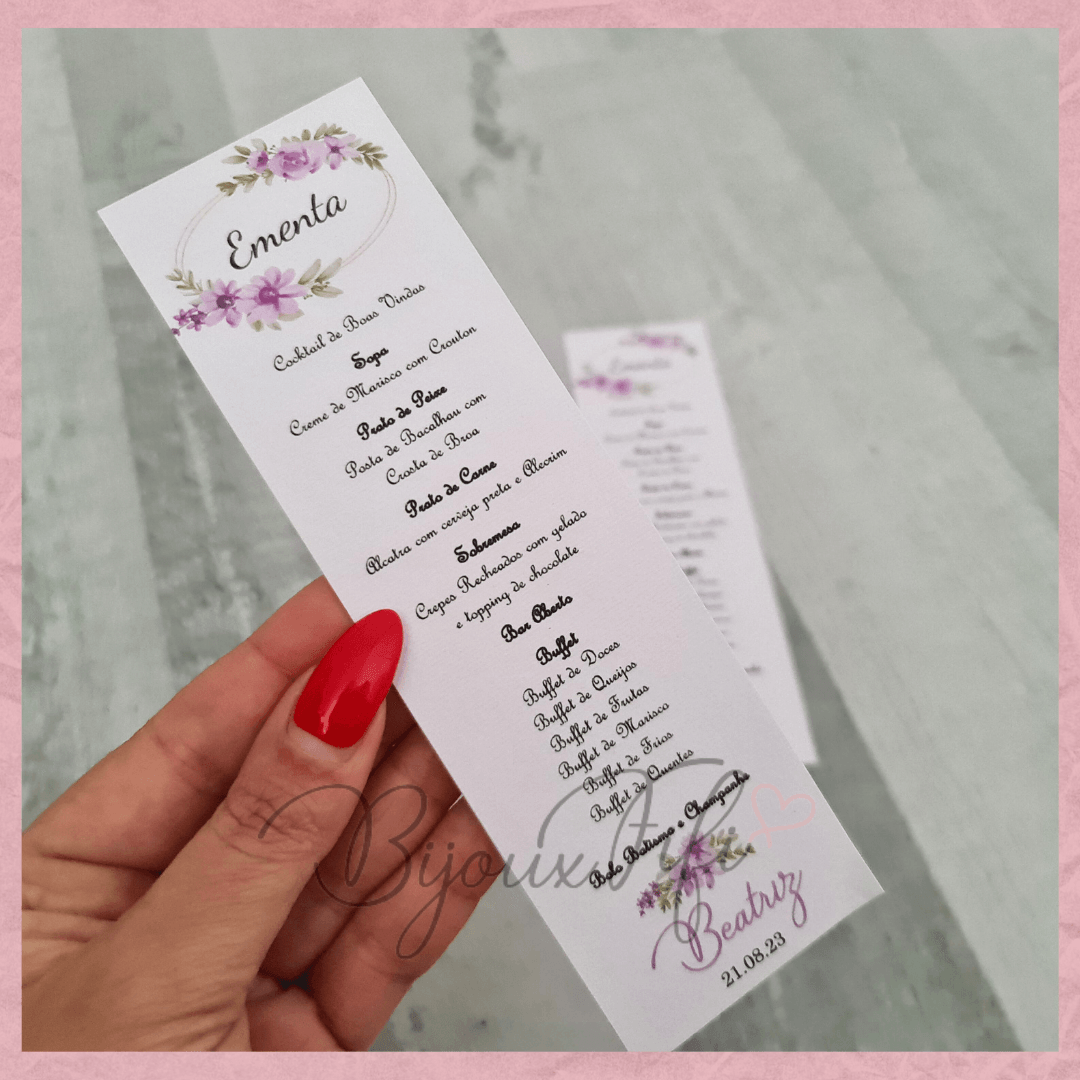 Ementa
Cocktail de Boas Vindas
Sopa
Creme de Marisco com Crouton
Prato de Peixe
Posta de Bacalhau com
Crosta de Broa
Prato de Carne
Alcatra com cerveja preta e Alecrim
Sobremesa
Crepes Recheados com gelado
e topping de chocolate
Bar Aberto
Buffet
Buffet de Doces
Buffet de Queijos
Buffet de Frutas
Buffet de Marisco
Buffet de Frios
Buffet de Quentes
Bolo Batismo e Champanhe
Beatriz
21.08.23
Ementa